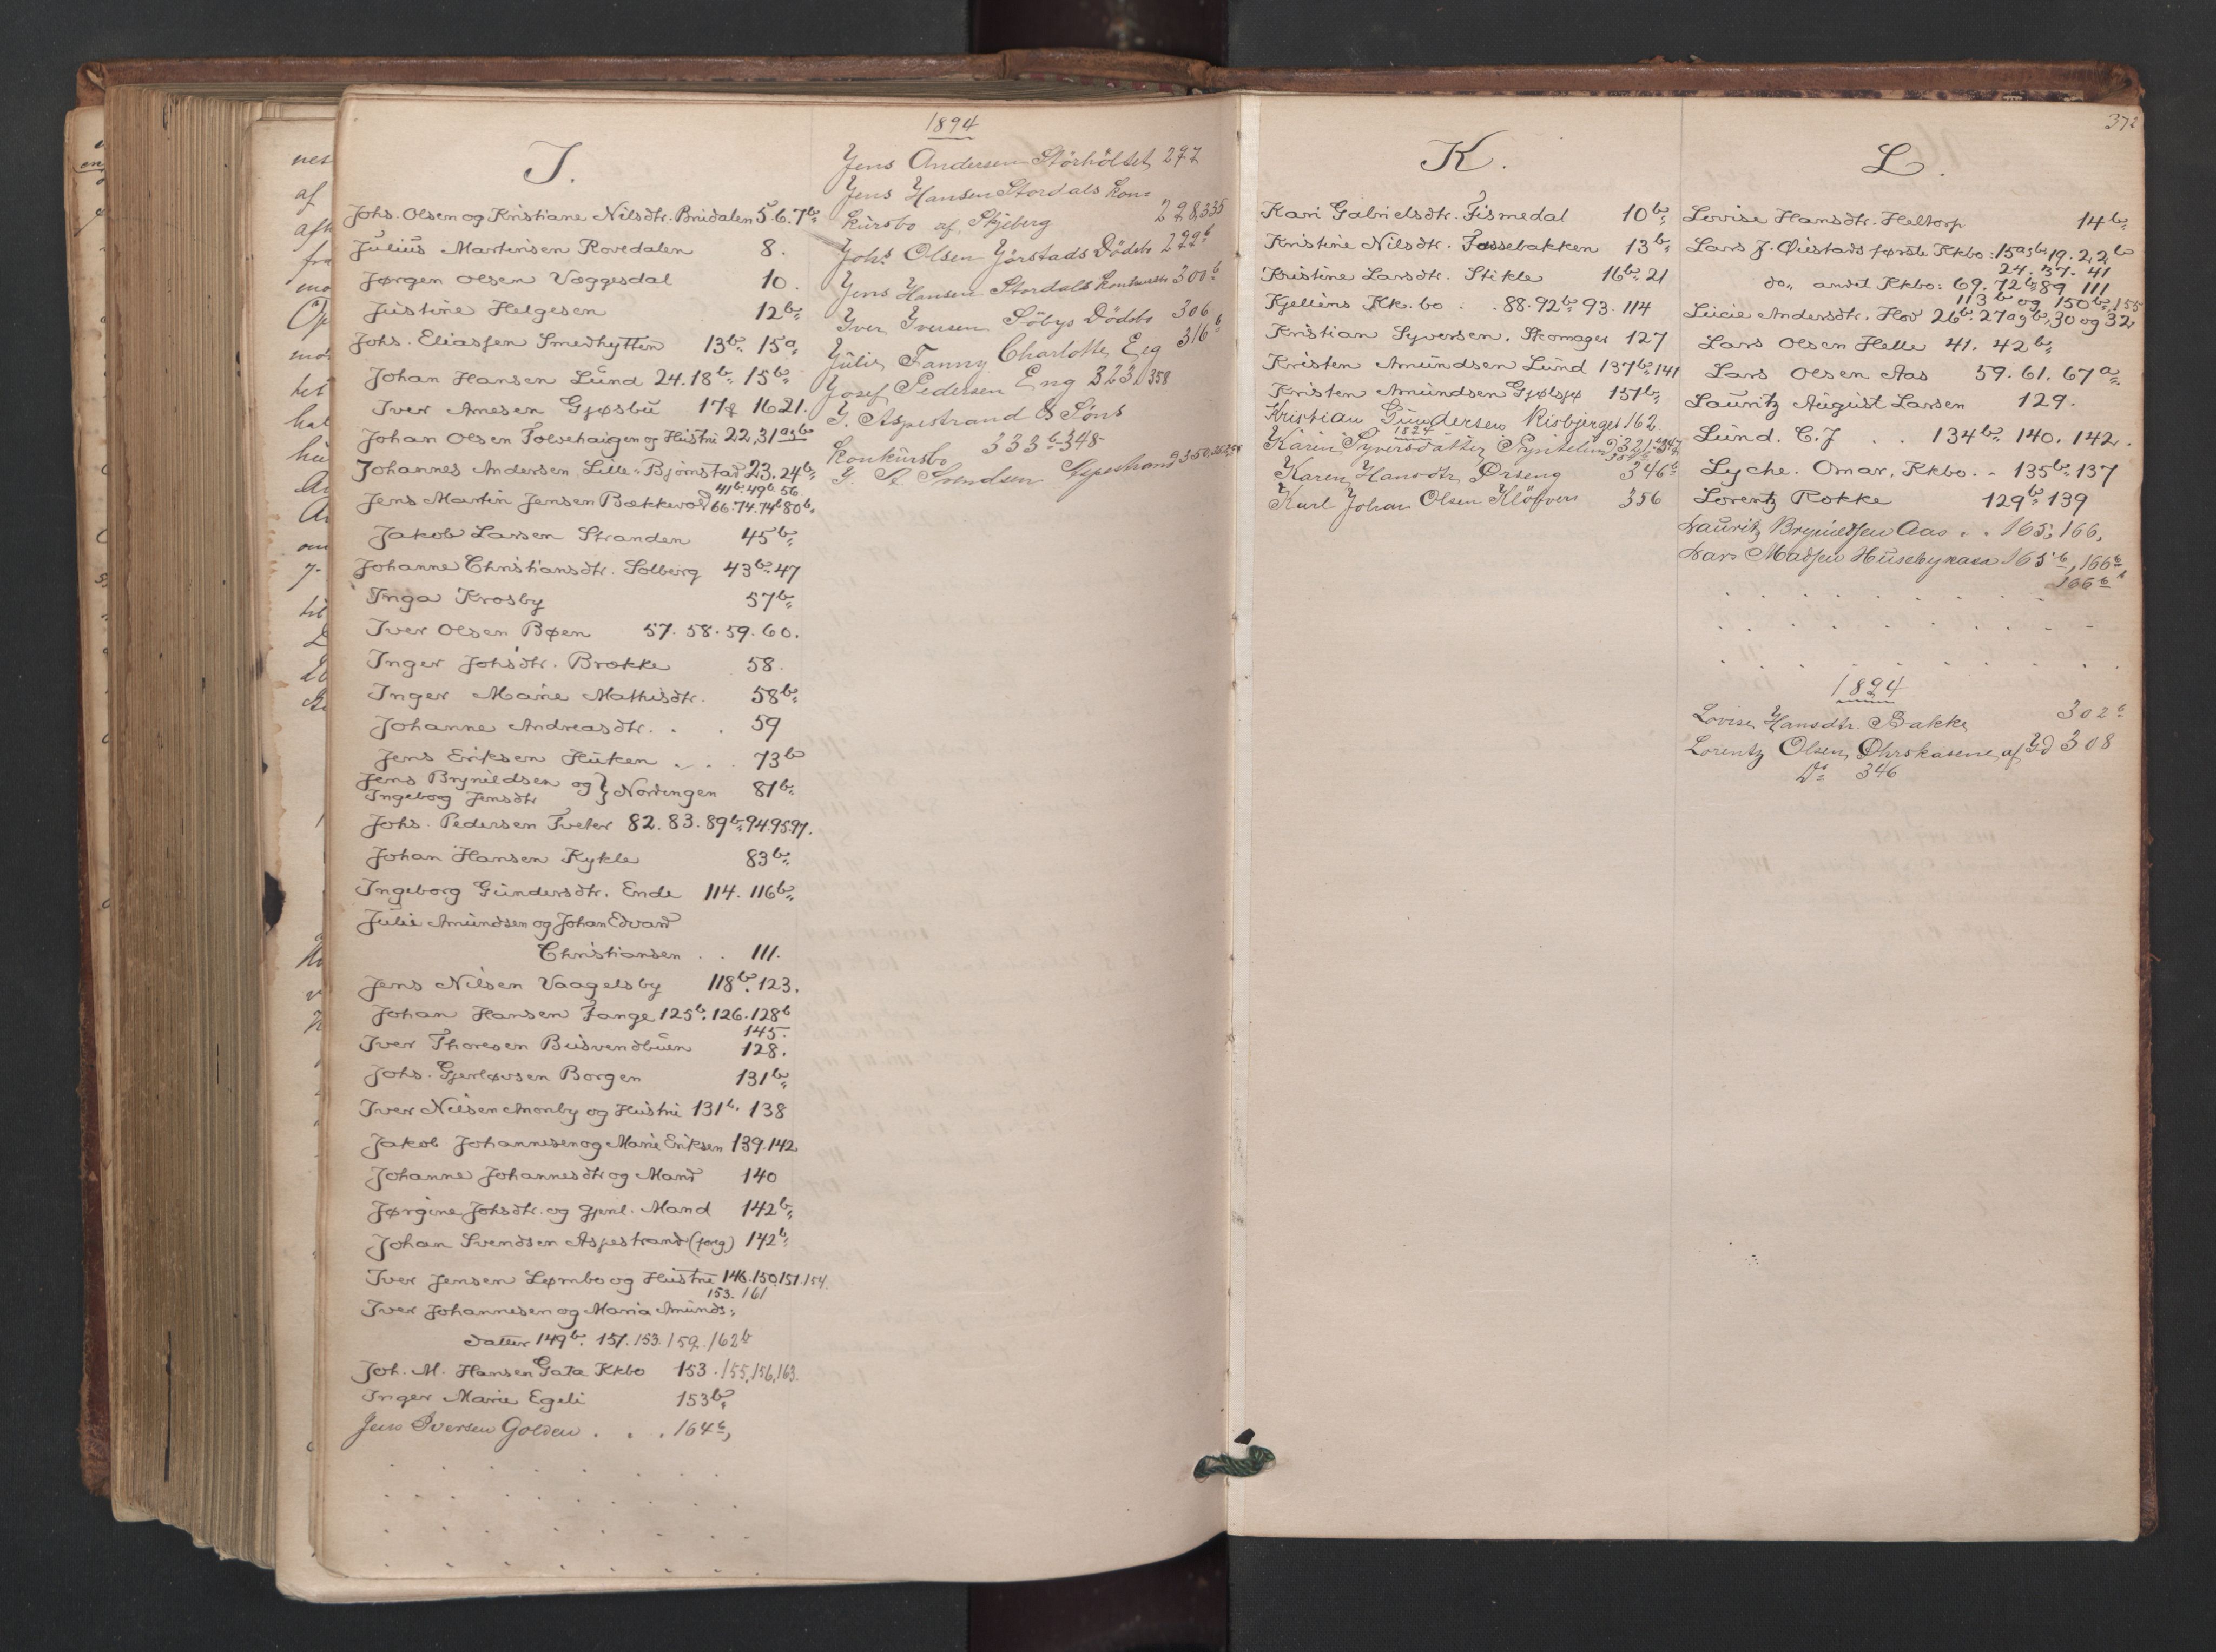 J.
Johs. Olsen og Kristiane Nilsdtr. Bridalen 5. 6. 7b
Julius Martinsen Rovedalen 8.
Jørgen Olsen Væggesdal 10.
Justine Helgesen 12b
Johs. Eliassen Smedhytten 13b. 15a
Johan Hansen Lund 24. 18b. 15b
Iver Arnesen Gjøsbu 17 & 16 21.
Johan Olsen Tolsehaigen og Hustru 22. 31 a og b
Johannes Andersen Lille-Bjørnstad 23. 24b
41b. 49b. 56
Jens Martin Jensen Bækkevold 66. 74. 74b 80b.
Jakob Larsen Stranden 45b
Johanne Christiansdtr. Solberg 43b. 47
Inga Krosby 57b
Iver Olsen Bøen 57. 58. 59. 60.
Inger Johsdtr. Brække 58.
Inger Marie Mathisdtr. 58b
Johanne Andreasdtr. . . 59
Jens Eriksen Huken . . . 73b
Jens Brynildsen og
Ingeborg Jensdtr } Nordengen 81b
Johs. Pedersen Tveter 82. 83. 89b. 94. 95. 97.
Johan Hansen Kykle 83b
Ingeborg Gundersdtr. Ende 114. 116b
Julie Amundsen og Johan Edvard
Christiansen . . 111.
Jens Nilsen Vaagelsby 118b. 123.
Johan Hansen Tange 125b. 126. 128b
145.
Iver Thoresen Busvendbuen 128.
Johs. Gjerløvsen Borgen 131b
Iver Nilsen Monby og Hustru 131b. 138
Jakob Johannesen og Marie Eriksen 139. 142
Johanne Johannesdtr og Mand 140
Jørgine Johsdtr. og gjenl. Mand 142b
Johan Svendsen Aspestrand (foreg) 142b
Iver Jensen Lømbo og Hustru 146. 150. 151. 154.
153. 161
Iver Johannesen og Maria Amunds-
datter 149b. 151. 153. 159. 162b
Joh. M. Hansen Gata Kkbo 153. 155, 156, 163.
Inger Marie Egeli 153b
Jens Iversen Golden . . . 164b,
1894
Jens Andersen Störholtet 297
Jens Hansen Stordals Kon-
kursbo af Skjeberg 298, 335
Johs Olsen Jörstads Dödsbo 299b
Jens Hansen Stordals Konkursbo 300b
Iver Iversen Söbys Dödsbo 306
Julie Fanny Charlotte Eeg 316b
Josef Pedersen Eng 323. 358
J. Aspestrand & Söns
Konkursbo 333b 348
J. A. Svendsen 350,
K.
Kari Gabrielsdtr. Fismedal 10b
Kristine Nilsdtr. Fossebakken 13b
Kristine Larsdtr. Stikle 16b. 21
Kjelléns Kk.bo . . 88. 92b 93. 114
Kristian Syversen. Skomager 127
Kristen Amundsen Lund 137b. 141
Kristen Amundsen Gjølsjø 151b
Kristian Gundersen Risbjerget 162.
1894
Karen Syversdatter
Karen Hansdtr Örseng 346b
Karl Johan Olsen Klöfver 356
372
L.
Lovise Hansdtr. Heltorp 14b
Lars J. Øiestads første Kkbo: 15 a og b 19. 22b
24. 37. 41
do. andet Kkbo: 69. 72b. 89 111
113b og 150b. 155
Lucie Andersdtr. Hov 26b. 27 a og b, 30 og 32
Lars Olsen Helle 41. 42b
Lars Olsen Aas 59. 61. 67a.
Lauritz August Larsen 129.
Lund. C. J . . 134b. 140. 142.
Lyche. Omar, Kkbo. . 135b. 137
Lorentz Rokke 129b. 139
Lauritz Brynildsen Aas . . 165, 166,
Lars Madsen Husebykasa 165b, 166b,
166b
1894
Lovise Hansdtr. Bakke 302b
Lorentz Olsen Ohrskasene af Id 308
Do 346